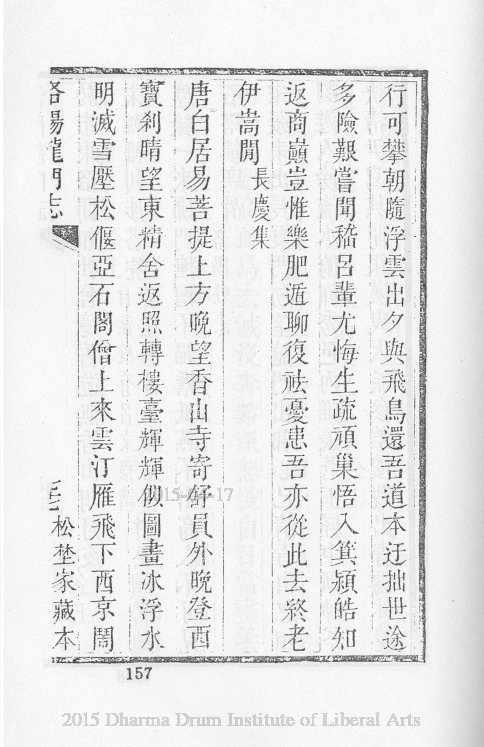 行可攀朝隨浮雲出夕與飛鳥還吾道本迂拙世途
多險艱嘗聞嵇呂輩尤悔生疏頑巢悟入箕潁皓知
返商巔豈惟樂肥遁聊復祛憂患吾亦從此去終老
伊嵩閒 長慶集
唐白居易菩提上方晚望香山寺寄舒員外晚登西
寶刹晴望東精舍返照轉樓臺輝輝似圖畫冰浮水
明滅雪壓松偃亞石閣僧上來雲汀雁飛下西京鬧
洛陽龍門志 松埜家藏本
2015-04-17
157
2015 Dharma Drum Institute of Liberal Arts